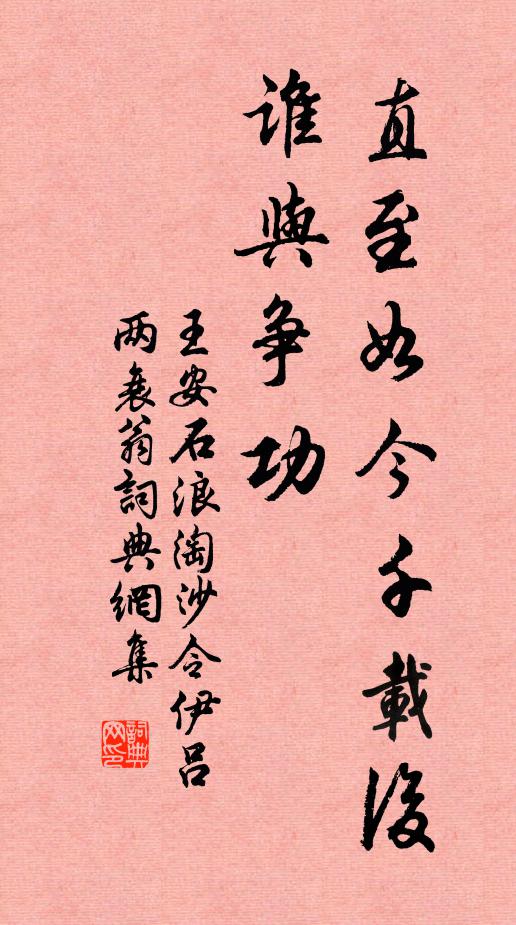 直至如今千載後
誰與争功
王安石浪淘沙令伊吕
两衰翁詞典網集
詞典
网印